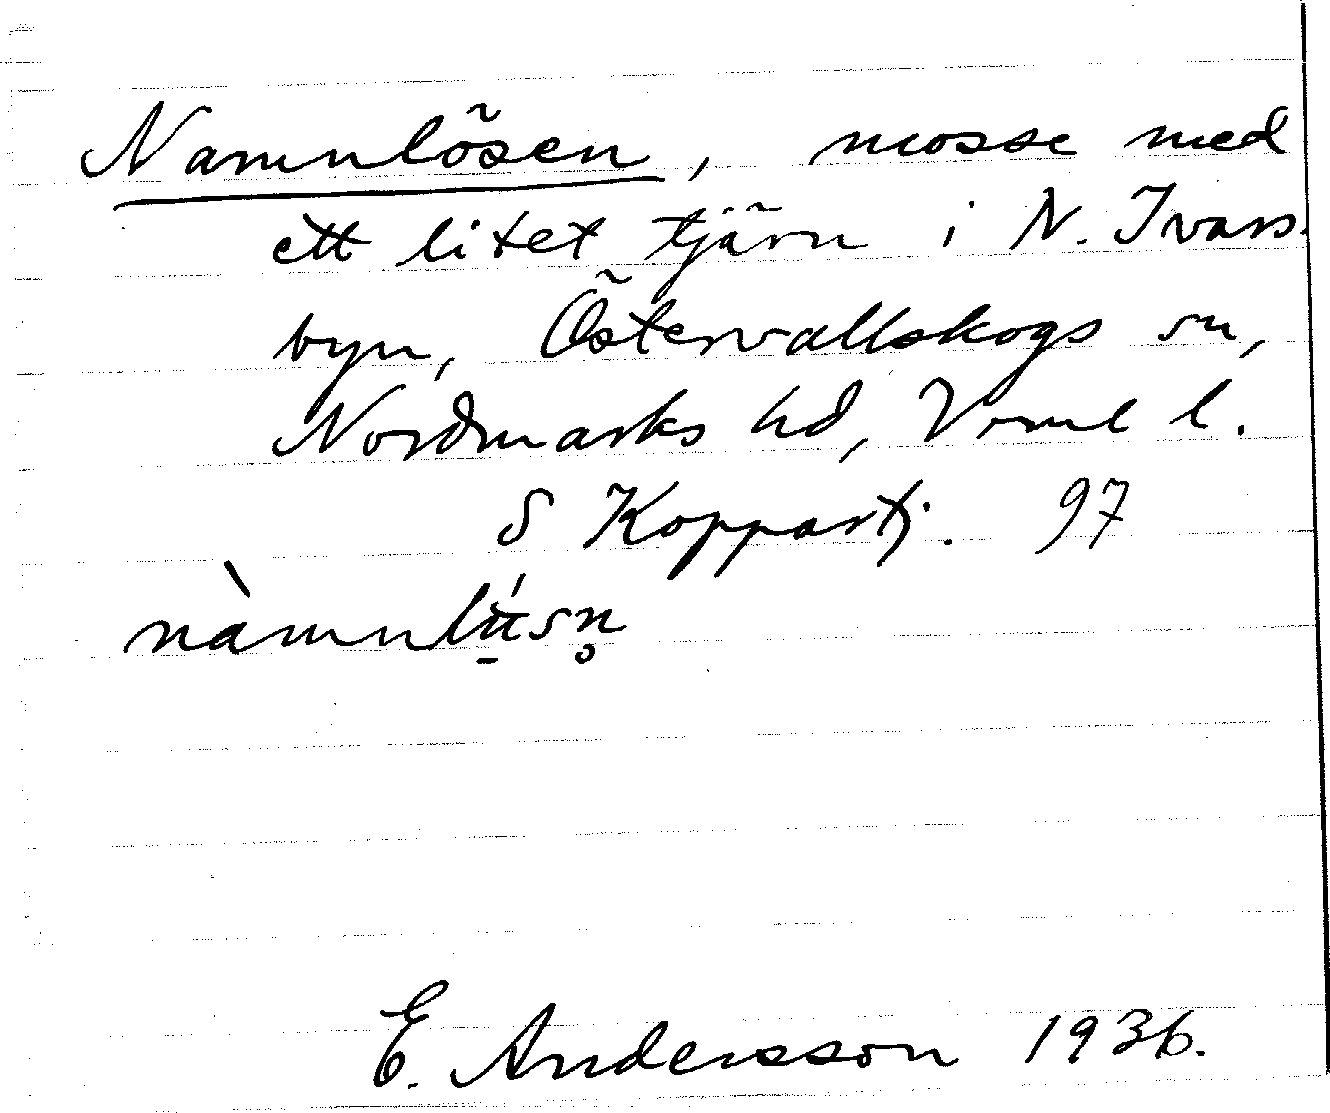 Namnlösen, mosse med
ett litet tjärn i N. Ivars-
byn, Östervallskogs sn,
Nordmarks hd, Vrml l.
S Koppartj. 97
E. Andersson 1936.